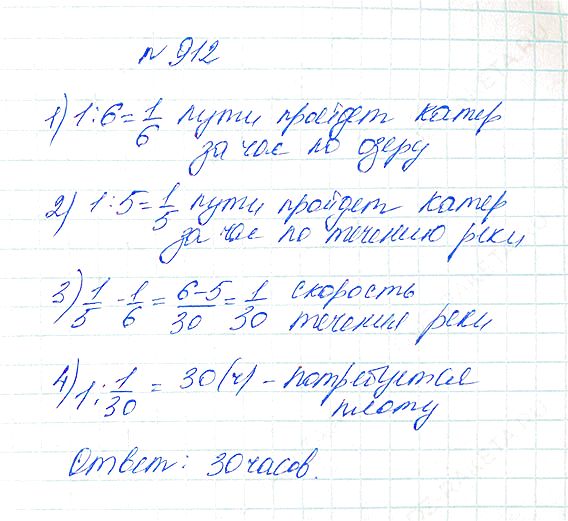 № 912
1) 1:6 = 1/6 пути пройдет катер
за час по озеру
2) 1:5 = 1/5 пути пройдет катер
за час по течению реки
3) 1/5 - 1/6 = 6-5/30 = 1/30 скорость
течения реки
4) 1: 1/30 = 30 (ч) - потребуется
плоту
Ответ: 30 часов.